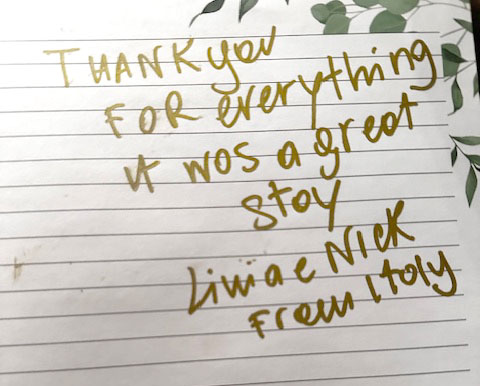 THANK you
FOR everything
it was a great
stay
Livia e NICK
From Italy